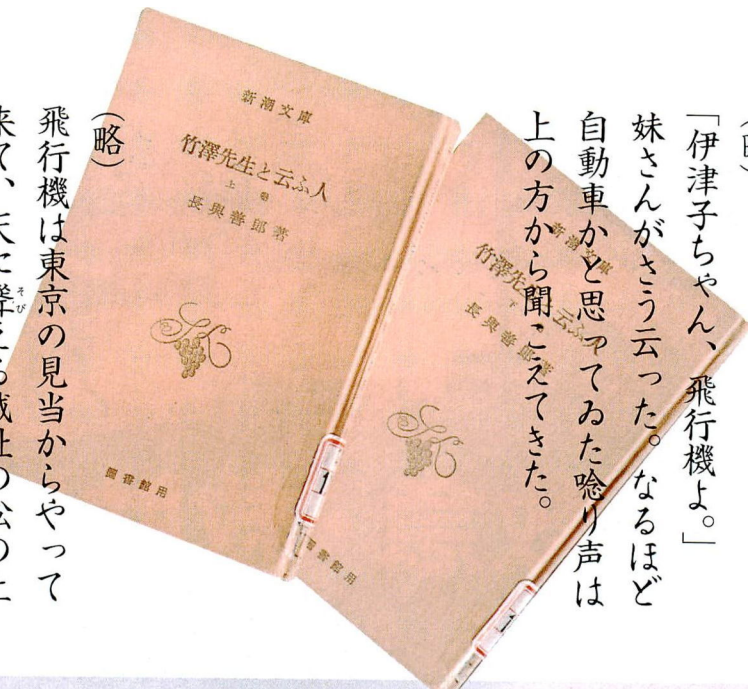 「伊津子ちゃん、飛行機よ。」
妹さんがさう云った。なるほど
自動車かと思ってゐた唸り声は
上の方から聞こえてきた。
(略)
飛行機は東京の見当からやって
来て、天に聳える城址の松の上
そび
新潮文庫
竹澤先生と云ふ人
上巻
長與善郎著
圖書館用
1
新潮文庫
竹澤先生と云ふ人
下
長與善郎著
圖書館用
1